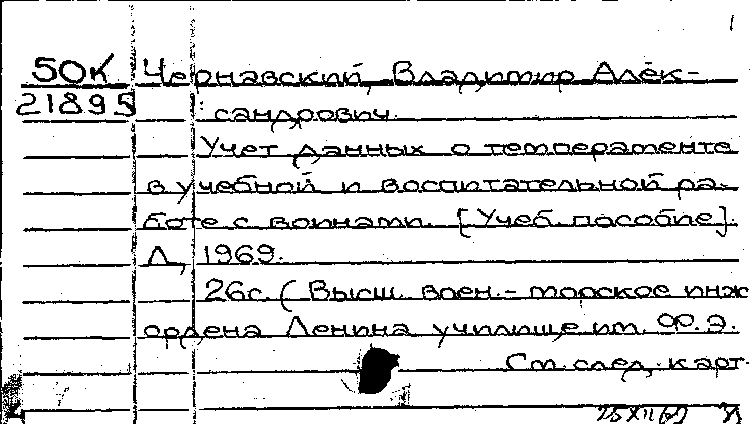 1
50К Чернавский, Владимир Алек-
21895 сандрович.
Учет данных о темперamente
в учебной и воспитательной ра-
боте с воинами. [Учеб. пособие].
Л, 1969.
26с. (Высш. воен.-морское инж
ордена Ленина училище им. Ф.Э.
См. след. карт.